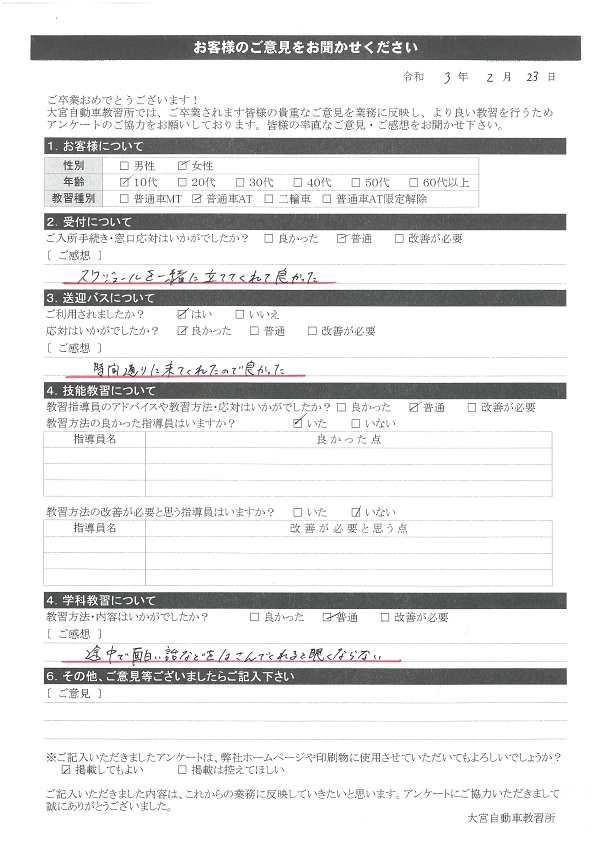 お客様のご意見をお聞かせください
令和 3 年 2 月 23 日
ご卒業おめでとうございます！
大宮自動車教習所では、ご卒業されます皆様の貴重なご意見を業務に反映し、より良い教習を行うため
アンケートのご協力をお願いしております。皆様の率直なご意見・ご感想をお聞かせ下さい。
1. お客様について
性別 □ 男性 ☑ 女性
年齢 ☑ 10代 □ 20代 □ 30代 □ 40代 □ 50代 □ 60代以上
教習種別 □ 普通車MT ☑ 普通車AT □ 二輪車 □ 普通車AT限定解除
2. 受付について
ご入所手続き・窓口応対はいかがでしたか？ □ 良かった ☑ 普通 □ 改善が必要
［ ご感想 ］
スケジュールを一緒に立ててくれて良かった
3. 送迎バスについて
ご利用されましたか？ ☑ はい □ いいえ
応対はいかがでしたか？ ☑ 良かった □ 普通 □ 改善が必要
［ ご感想 ］
時間通りに来てくれたので良かった
4. 技能教習について
教習指導員のアドバイスや教習方法・応対はいかがでしたか？ □ 良かった ☑ 普通 □ 改善が必要
教習方法の良かった指導員はいますか？ ☑ いた □ いない
指導員名 良かった点
教習方法の改善が必要と思う指導員はいますか？ □ いた ☑ いない
指導員名 改善が必要と思う点
4. 学科教習について
教習方法・内容はいかがでしたか？ □ 良かった ☑ 普通 □ 改善が必要
［ ご感想 ］
途中で面白い話などをはさんでくれると眠くならない
6. その他、ご意見等ございましたらご記入下さい
［ ご意見 ］
※ご記入いただきましたアンケートは、弊社ホームページや印刷物に使用させていただいてもよろしいでしょうか？
☑ 掲載してもよい □ 掲載は控えてほしい
ご記入いただきました内容は、これからの業務に反映していきたいと思います。アンケートにご協力いただきまして
誠にありがとうございました。
大宮自動車教習所